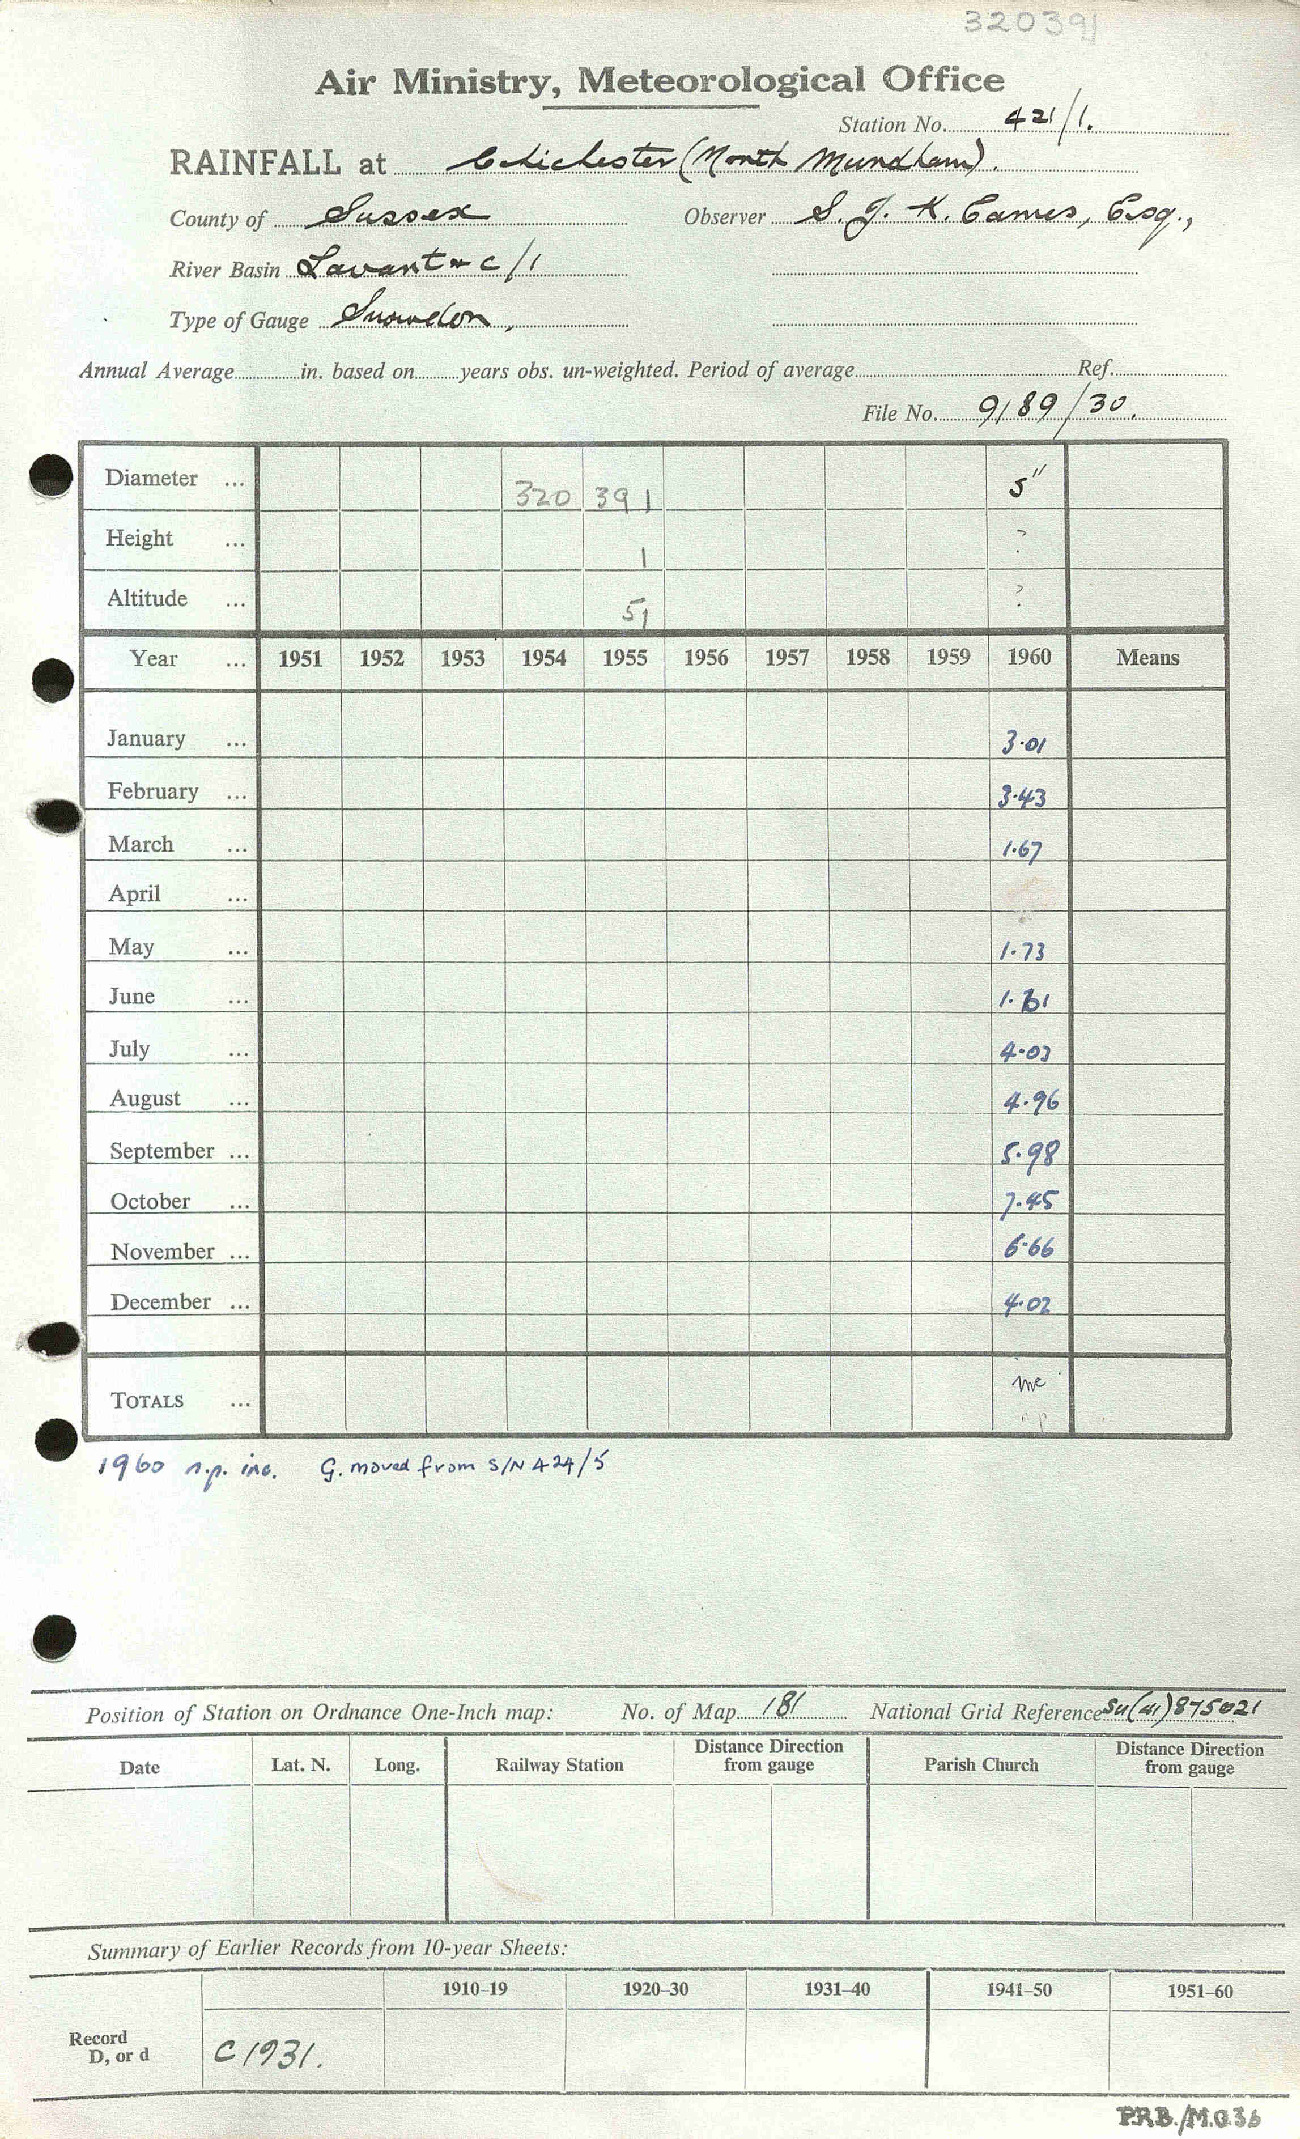 320391
Air Ministry, Meteorological Office
Station No. 421/1.
RAINFALL at Chichester (North Mundham).
County of Sussex Observer S. J. K. Eames, Esq.,
River Basin Lavant & c/1
Type of Gauge Snowdon,
Annual Average in. based on years obs. un-weighted. Period of average Ref.
File No. 9189/30.
Diameter ... 320 391 5"
Height ... 1 ?
Altitude ... 51 ?
Year ... 1951 1952 1953 1954 1955 1956 1957 1958 1959 1960 Means
January ... 3.01
February ... 3.43
March ... 1.67
April ...
May ... 1.73
June ...
July ... 4.03
August ... 4.96
September ... 5.98
October ... 7.45
November ... 6.66
December ... 4.02
TOTALS ... inc
1960 n.p. inc. G. moved from S/N 424/5
Position of Station on Ordnance One-Inch map: No. of Map 181 National Grid Reference SU(41)875021
Date Lat. N. Long. Railway Station Distance Direction from gauge Parish Church Distance Direction from gauge
Summary of Earlier Records from 10-year Sheets:
1910–19 1920–30 1931–40 1941–50 1951–60
Record D, or d C1931.
P.R.B./M.O.36